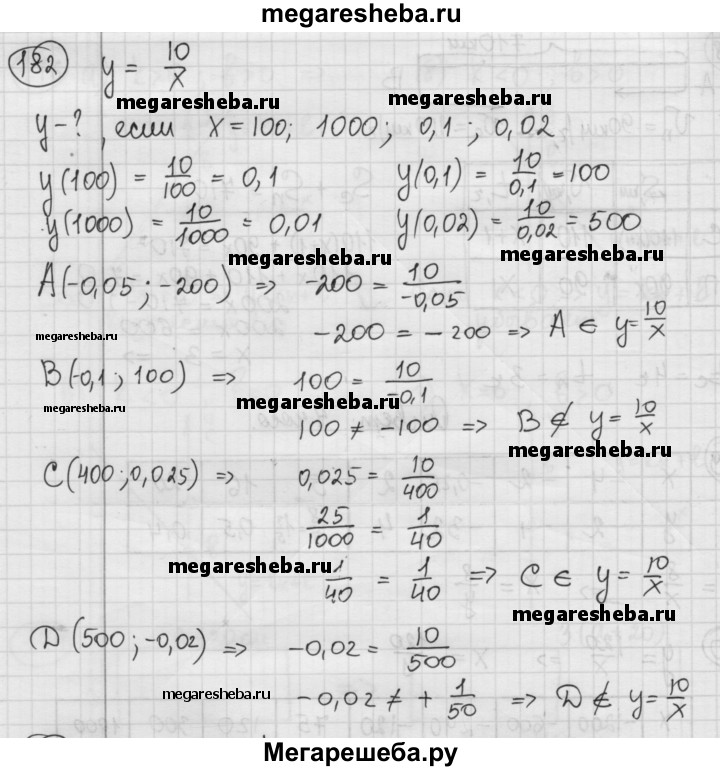 megaresheba.ru
182 y = 10/x
megaresheba.ru megaresheba.ru
y - ? , если x = 100; 1000; 0,1; 0,02
y(100) = 10/100 = 0,1 y(0,1) = 10/0,1 = 100
y(1000) = 10/1000 = 0,01 y(0,02) = 10/0,02 = 500
megaresheba.ru megaresheba.ru
A(-0,05; -200) => -200 = 10/-0,05
megaresheba.ru -200 = -200 => A ∈ y = 10/x
B(-0,1; 100) => 100 = 10/-0,1
megaresheba.ru megaresheba.ru
100 ≠ -100 => B ∉ y = 10/x
megaresheba.ru
C(400; 0,025) => 0,025 = 10/400
25/1000 = 1/40
megaresheba.ru
1/40 = 1/40 => C ∈ y = 10/x
megaresheba.ru
D(500; -0,02) => -0,02 = 10/500
megaresheba.ru -0,02 ≠ + 1/50 => D ∉ y = 10/x
Мегарешеба.ру